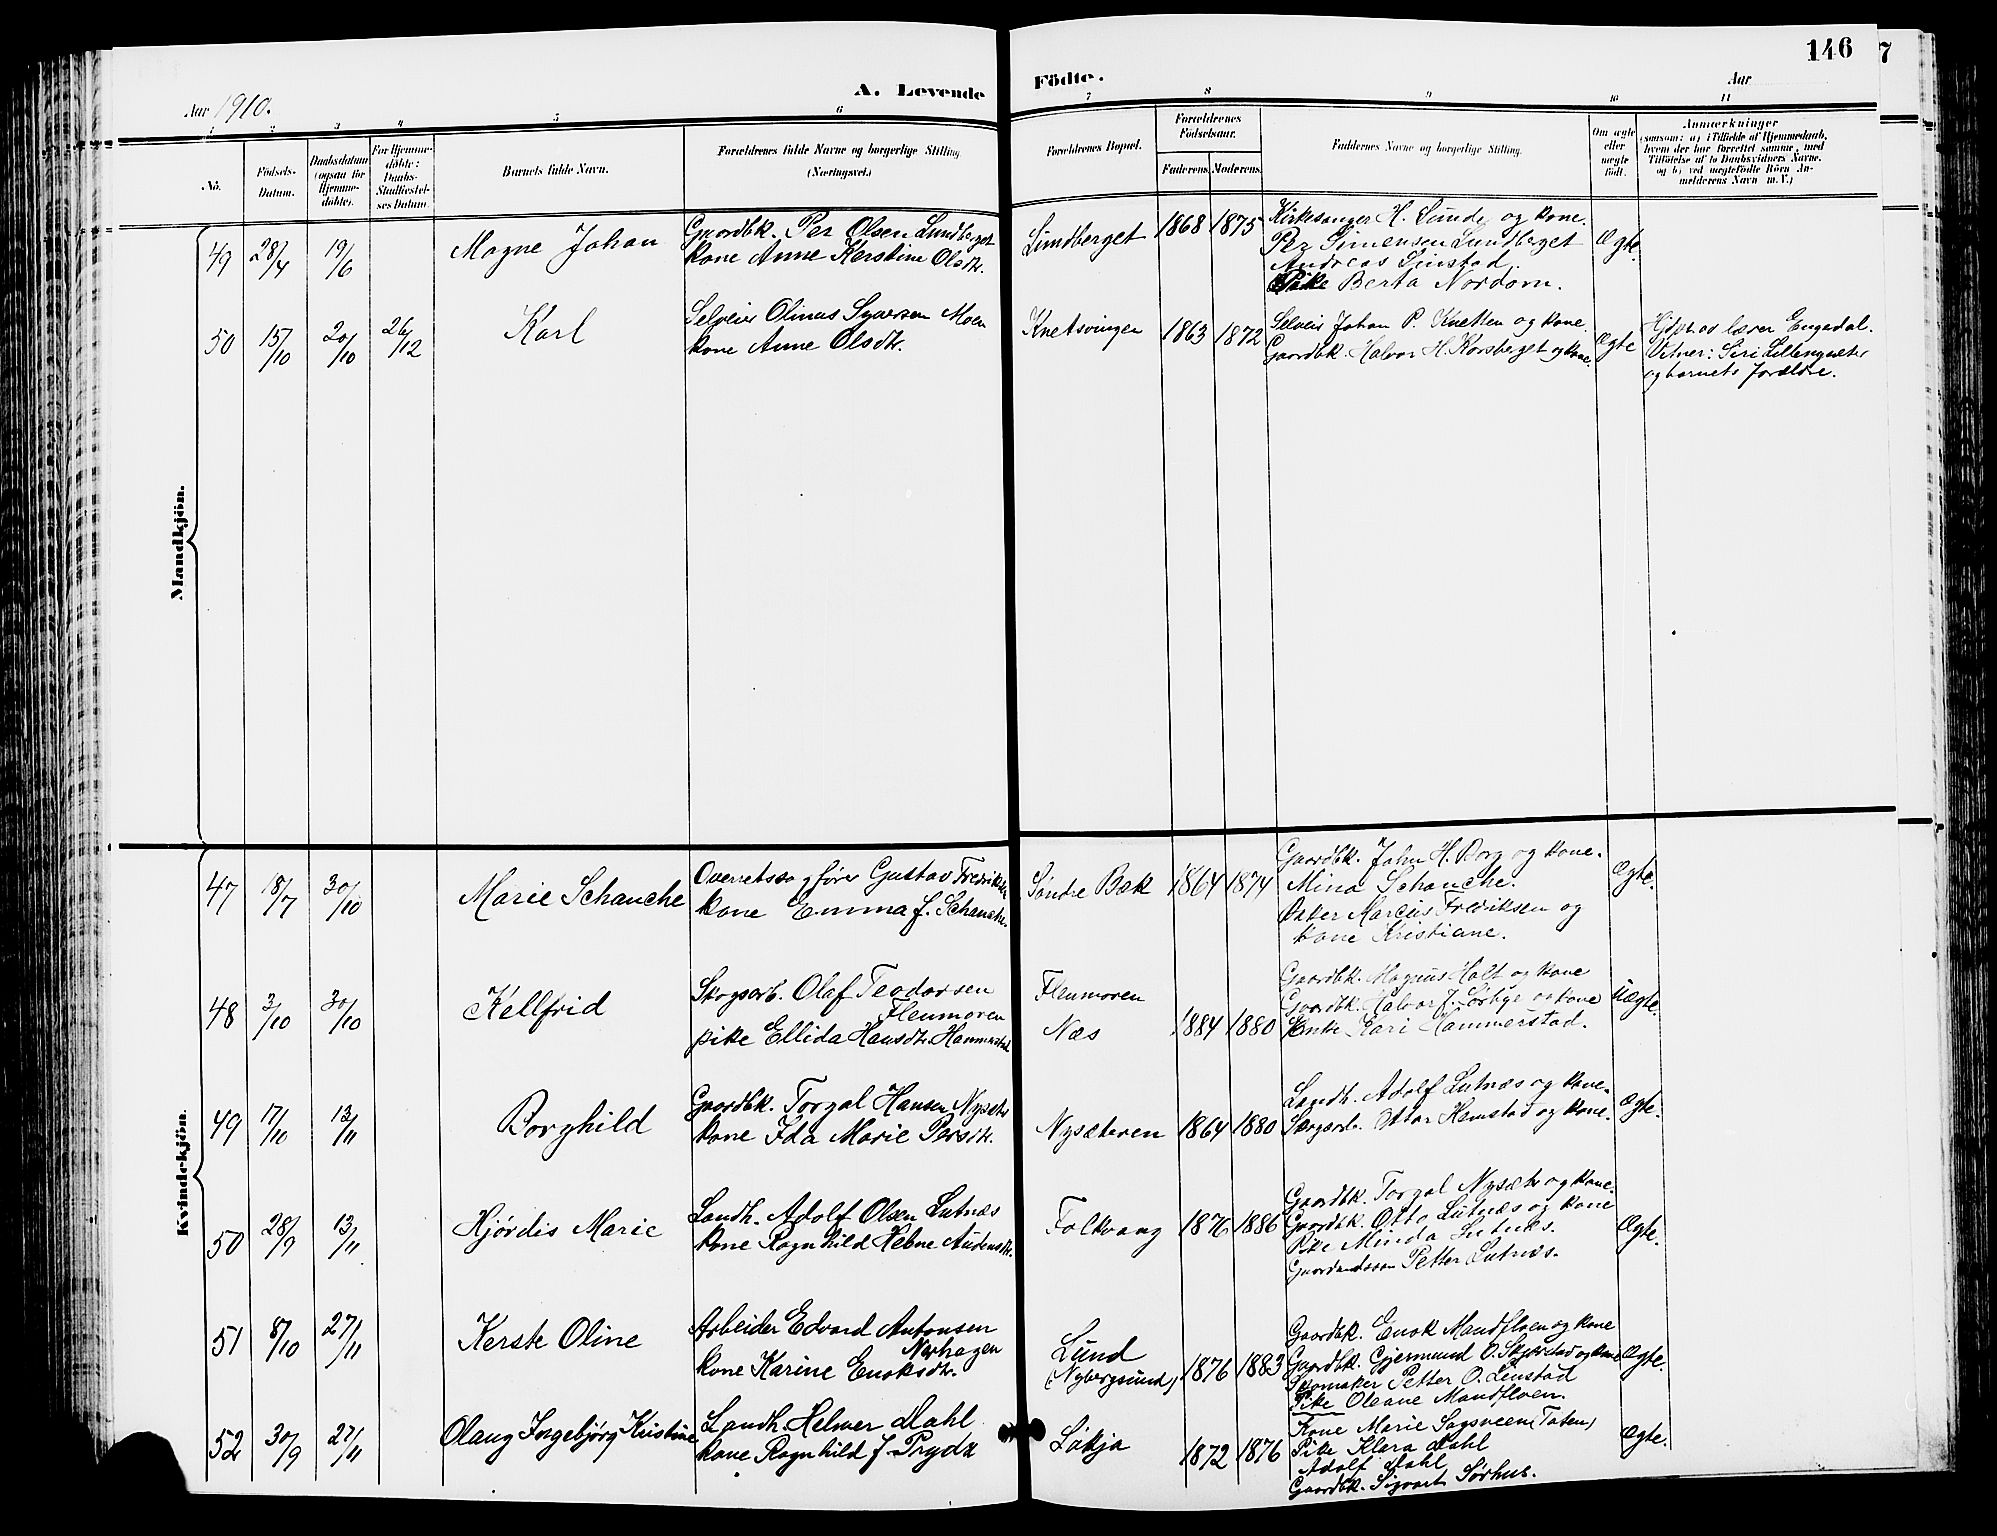 146
7
Aar 1910.
A. Levende
Födte.
Aar
1
2
3
4
5
6
7
8
9
10
11
No.
Födsels-
Datum.
Daabsdatum
(ogsaa for
Hjemme-
döbte).
For Hjemme-
döbte:
Daabs-
Stadfæstel-
ses Datum.
Barnets fulde Navn.
Forældrenes fulde Navne og borgerlige Stilling
(Næringsvei.)
Forældrenes Bopæl.
Forældrenes
Födselsaar.
Faderens.
Moderens.
Faddernes Navne og borgerlige Stilling.
Om ægte
eller
uægte
født.
Anmærkninger
(saasom: a) i Tilfælde af Hjemmedaab,
hvem der har forrettet samme, med
Tilföielse af to Daabsvidners Navne.
og b) ved uægtefødte Börn An-
melderens Navn m. V.)
Mandkjön.
49 28/4 19/6 Magne Johan
Gaardbk. Per Olsen Lundberget
kone Anne Kerstine Olsdtr.
Lundberget 1868 1875
Kirkesanger H. Lunde og kone.
Per Simensen Lundberget
Andreas Linstad.
Pike Berta Nordorn.
Ægte.
50 15/10 20/10 26/12 Karl
Selveier Olinus Syversen Moen
kone Anne Olsdtr.
Knetsvingen 1863 1872
Selveier Johan P. Knetten og kone.
Gaardbk. Halvor H. Korsberget og kone.
Ægte
Hjdpt av lærer Engedal.
Vitner: Siri Lillengsæter
og barnets forældre.
Kvindekjön.
47 18/7 30/10 Marie Schanche
Overretssagfører Gustav Fredriksen
kone Emma J. Schanche.
Søndre Bæk 1864 1874
Gaardbk. John H. Borg og kone.
Mina Schanche.
Baker Marcius Fredriksen og
kone Kristiane.
Ægte.
48 3/10 30/10 Kellfrid
Skogsarb. Olaf Teodorsen
Flenmoren
pike Ellida Hansdtr. Hammerstad
Flenmoren
Næs
1884 1880
Gaardbk. Magnus Holt og kone
Gaardbk. Halvor J. Sørbye og kone
Enke Kari Hammerstad.
Uægte.
49 17/10 13/11 Borghild
Gaardbk. Torgal Hansen Nysæter
kone Ida Marie Persdtr.
Nysæteren 1864 1880
Landh. Adolf Lutnæs og kone.
Sagarb. Ottar Hemstad og kone.
Ægte.
50 28/9 13/11 Hjørdis Marie
Landh. Adolf Olsen Lutnæs
kone Ragnhild Helene Audensdtr.
Folkvang 1876 1886
Gaardbk. Torgal Nysæter og kone.
Gaardbk. Otto Lutnæs og kone
Pike Minda Lutnæs.
Gaardmandssøn Petter Lutnæs.
Ægte.
51 8/10 27/11 Kerste Oline
Arbeider Edvard Antonsen
Nerhagen
kone Karine Enoksdtr.
Lund
(Nybergsund)
1876 1883
Gaardbk. Enok Mandfloen og kone
Gaardbk. Gjermund O. Skjærstad og kone
Skomaker Petter O. Lenstad
Pike Oleane Mandfloen.
Ægte.
52 30/9 27/11 Olaug Ingebjørg Kristine
Landh. Helmer Dahl
kone Ragnhild J. Prydz
Løkja 1872 1876
Kone Marie Sagsveen (Taten)
Pike Klara Dahl
Adolf Dahl
Gaardbk. Sigvart Sørhus.
Ægte.